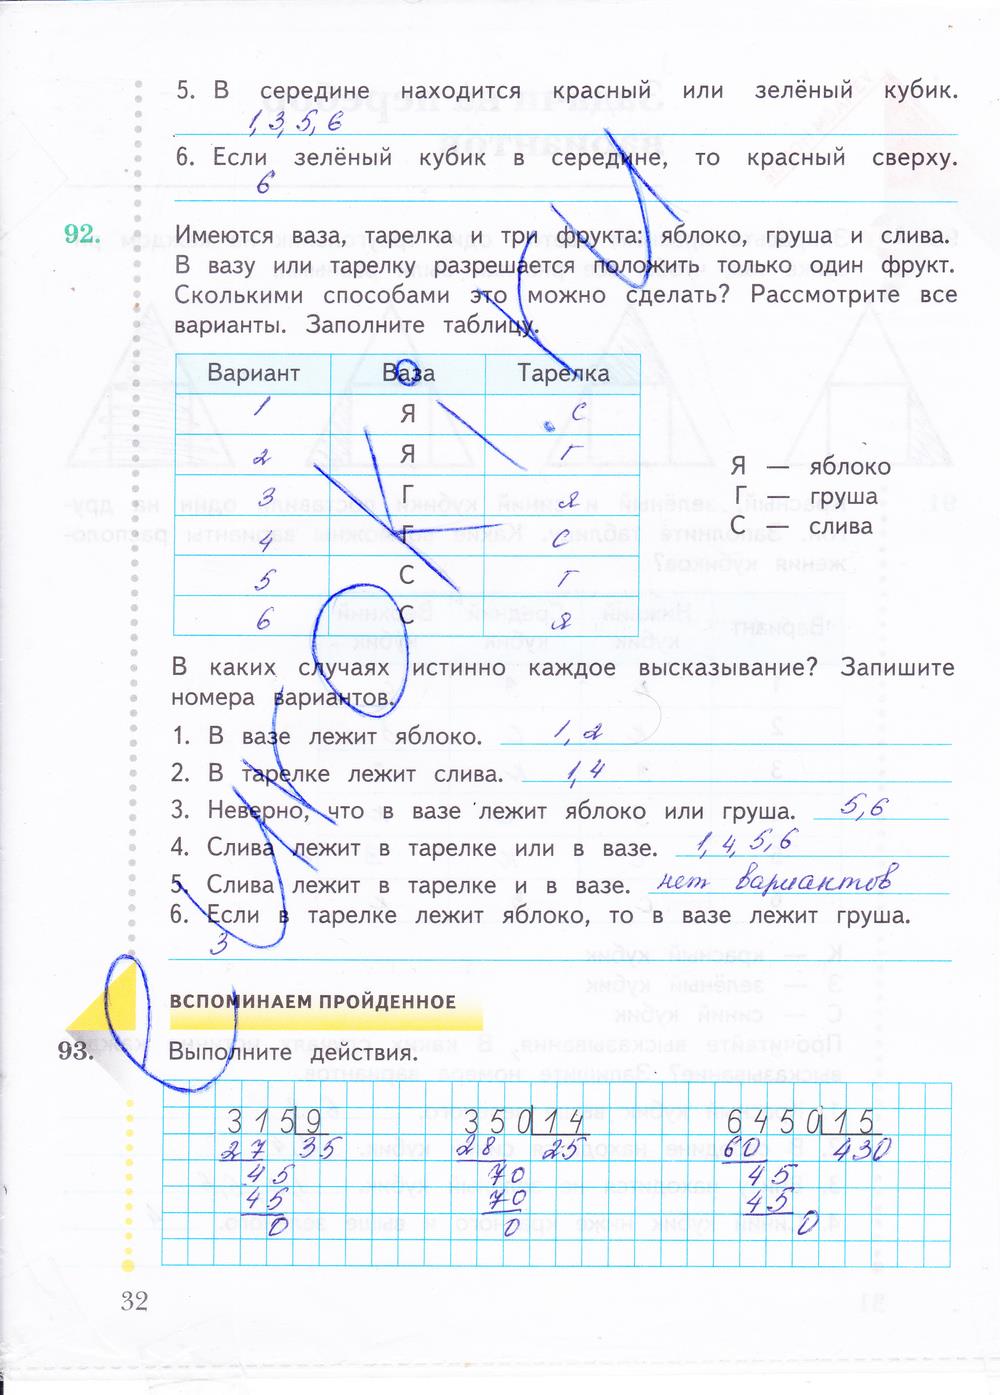 5. В середине находится красный или зелёный кубик.
1, 3, 5, 6
6. Если зелёный кубик в середине, то красный сверху.
6
92. Имеются ваза, тарелка и три фрукта: яблоко, груша и слива.
В вазу или тарелку разрешается положить только один фрукт.
Сколькими способами это можно сделать? Рассмотрите все
варианты. Заполните таблицу.
Вариант Ваза Тарелка
1 Я С
2 Я Г
3 Г Я
4 Г С
5 С Г
6 С Я
Я — яблоко
Г груша
С — слива
В каких случаях истинно каждое высказывание? Запишите
номера вариантов.
1. В вазе лежит яблоко. 1, 2
2. В тарелке лежит слива. 1,4
3. Неверно, что в вазе лежит яблоко или груша. 5,6
4. Слива лежит в тарелке или в вазе. 1, 4, 5, 6
5. Слива лежит в тарелке и в вазе. нет вариантов
6. Если в тарелке лежит яблоко, то в вазе лежит груша.
3
ВСПОМИНАЕМ ПРОЙДЕННОЕ
93. Выполните действия.
315 9 350 14 6450 15
27 35 28 25 60 430
45 70 45
45 70 45
0 0 0
32